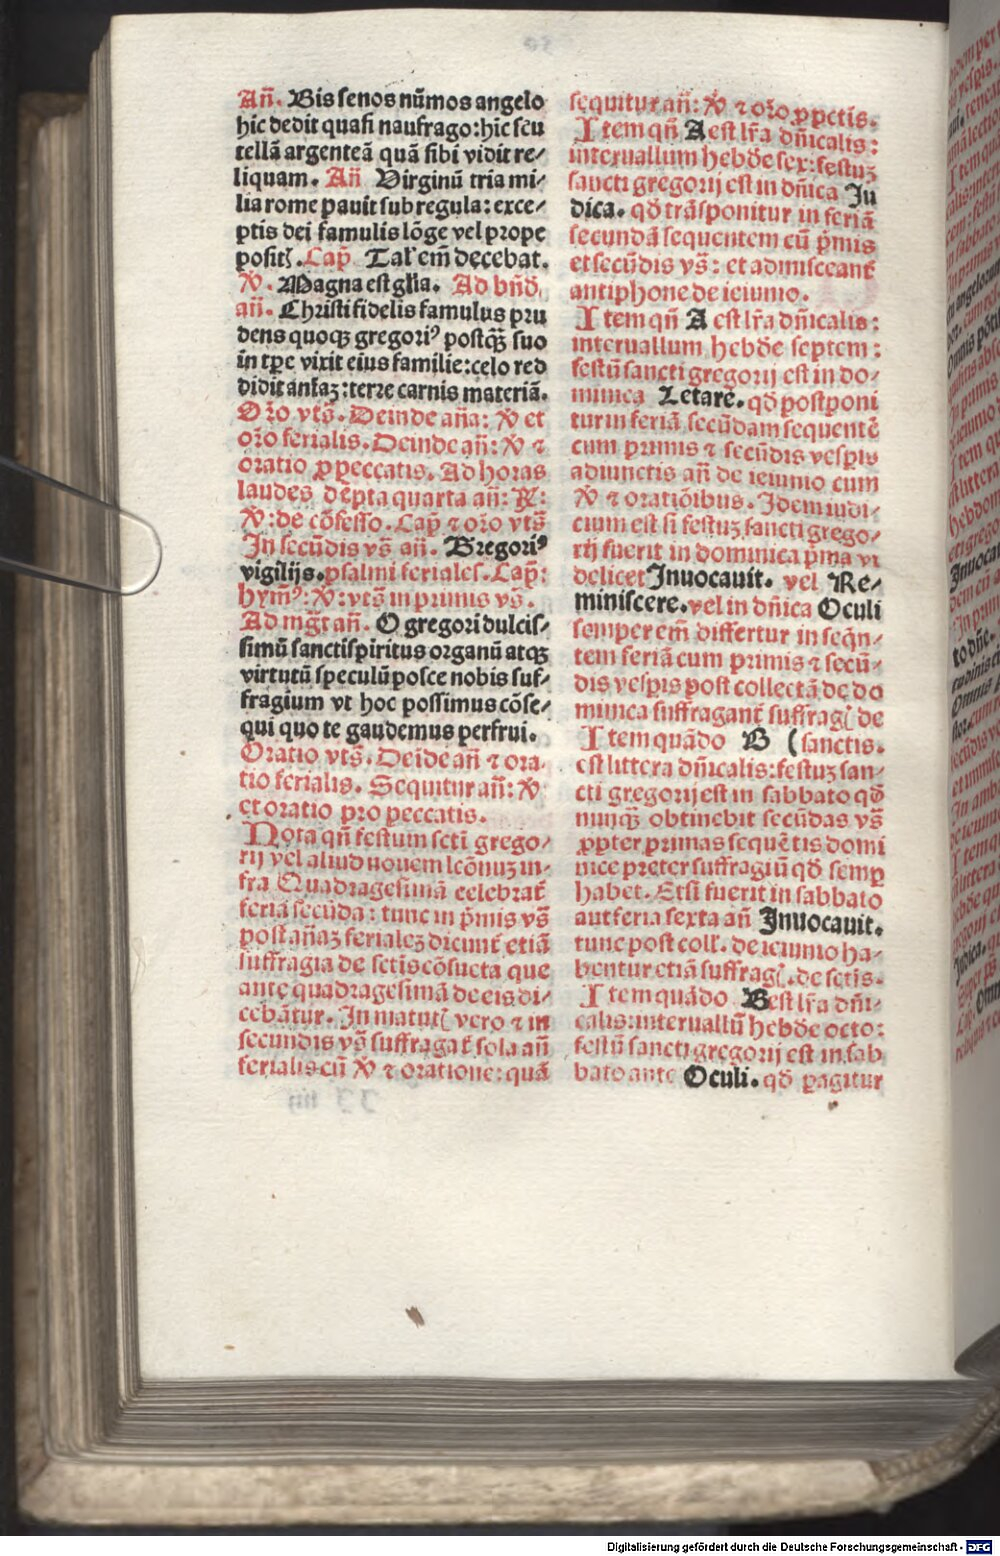 Añ. Bis senos nūmos angelo
hic dedit quasi naufrago: hic scu
tellā argenteā quā sibi vidit re⸗
liquam. Añ Virginū tria mi⸗
lia rome pauit sub regula: exce⸗
ptis dei famulis lōge vel prope
positꝭ. Cap̄. Tal' em̄ dęcebat.
℣. Magna est gl̄ia. Ad bn̄d.
añ. Christi fidelis famulus pru
dens quoqꝫ gregoriꝰ postqꝫ̄ suo
in tp̄e vixit eius familie: celo red
didit anīaꝫ: terre carnis materiā.
Or̄o vts̄. Deinde añā: ℣ et
or̄o ferialis. Deinde añ: ℣ ⁊
oratio ꝓ peccatis. Ad horas
laudes dēpta quarta añ: ℟:
℣: de cōfesso. Cap̄ ⁊ or̄o vts̄
In secūdis vs̄ añ. Gregoriꝰ
vigilijs. psalmi feriales. Cap̄:
hymꝰ: ℣: vts̄ in primis vs̄.
Ad mḡt añ. O gregori dulcis⸗
simū sancti spiritus organū atqꝫ
virtutū speculū posce nobis suf⸗
fragium vt hoc possimus cōse⸗
qui quo te gaudemus perfrui.
Oratio vts̄. Deīde añ ⁊ ora⸗
tio ferialis. Sequitur añ: ℣
et oratio pro peccatis.
Nota qn̄ festum scti grego⸗
rij vel aliud nouem lcōnuꝫ in⸗
fra Quadragesimā celebrat̄
feria secūda: tunc in p̄mis vs̄
post añaꝫ ferialeꝫ dicunt̄ etiā
suffragia de sctis cōsueta que
antę quadragesimā de eis di⸗
cebātur. In matutꝭ vero ⁊ in
secundis vs̄ suffragat̄ sola añ
ferialis cū ℣ ⁊ oratione: quā
sequitur añ: ℣ ⁊ or̄o ꝓ pctis.
Item qn̄ A est lr̄a dn̄icalis:
interuallum hebde sex: festuꝫ
sancti gregorij est in dn̄ica Ju
dica. qd̄ trāsponitur in feriā
secundā sequentem cū p̄mis
et secūdis vs̄: et admisceant̄
antiphone de ieiunio.
Item qn̄ A est lr̄a dn̄icalis:
interuallum hebde septem:
festū sancti gregorij est in do⸗
minica Letarē. qd̄ postponi
tur in feriā secūdam sequentē
cum primis ⁊ secūdis vesꝑis
adiunctis añ de ieiunio cum
℣ ⁊ oratiōibus. Idem iudi⸗
cium est si festuꝫ sancti grego⸗
rij fuerit in dominica p̄ma vi
delicet Inuocauit. vel Re⸗
miniscere. vel in dn̄ica Oculi
semper em̄ differtur in seqn̄⸗
tem feriā cum primis ⁊ secū⸗
dis vesꝑis post collectā dę do
minica suffragant̄ suffragꝭ de
Item quādo B (sanctis.
est littera dn̄icalis: festuꝫ san⸗
cti gregorij est in sabbato qd̄
nunqꝫ̄ obtinebit secūdas vs̄
ꝓpter primas sequētis domi
nice pręter suffragiū qd̄ semꝑ
habet. Etsi fuerit in sabbato
aut feria sexta añ Inuocauit.
tunc post coll'. de ieiunio ha⸗
bentur etiā suffragꝭ. de sctis.
Item quādo B est lr̄a dn̄i⸗
calis: interuallū hebde octo:
festū sancti gregorij est in sab
bato ante Oculi. qd̄ ꝑagitur
Digitalisierung gefördert durch die Deutsche Forschungsgemeinschaft - DFG